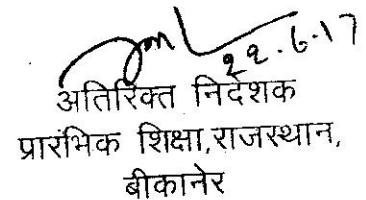 २२.6.17
अतिरिक्त निदेशक
प्रारंभिक शिक्षा,राजस्थान,
बीकानेर